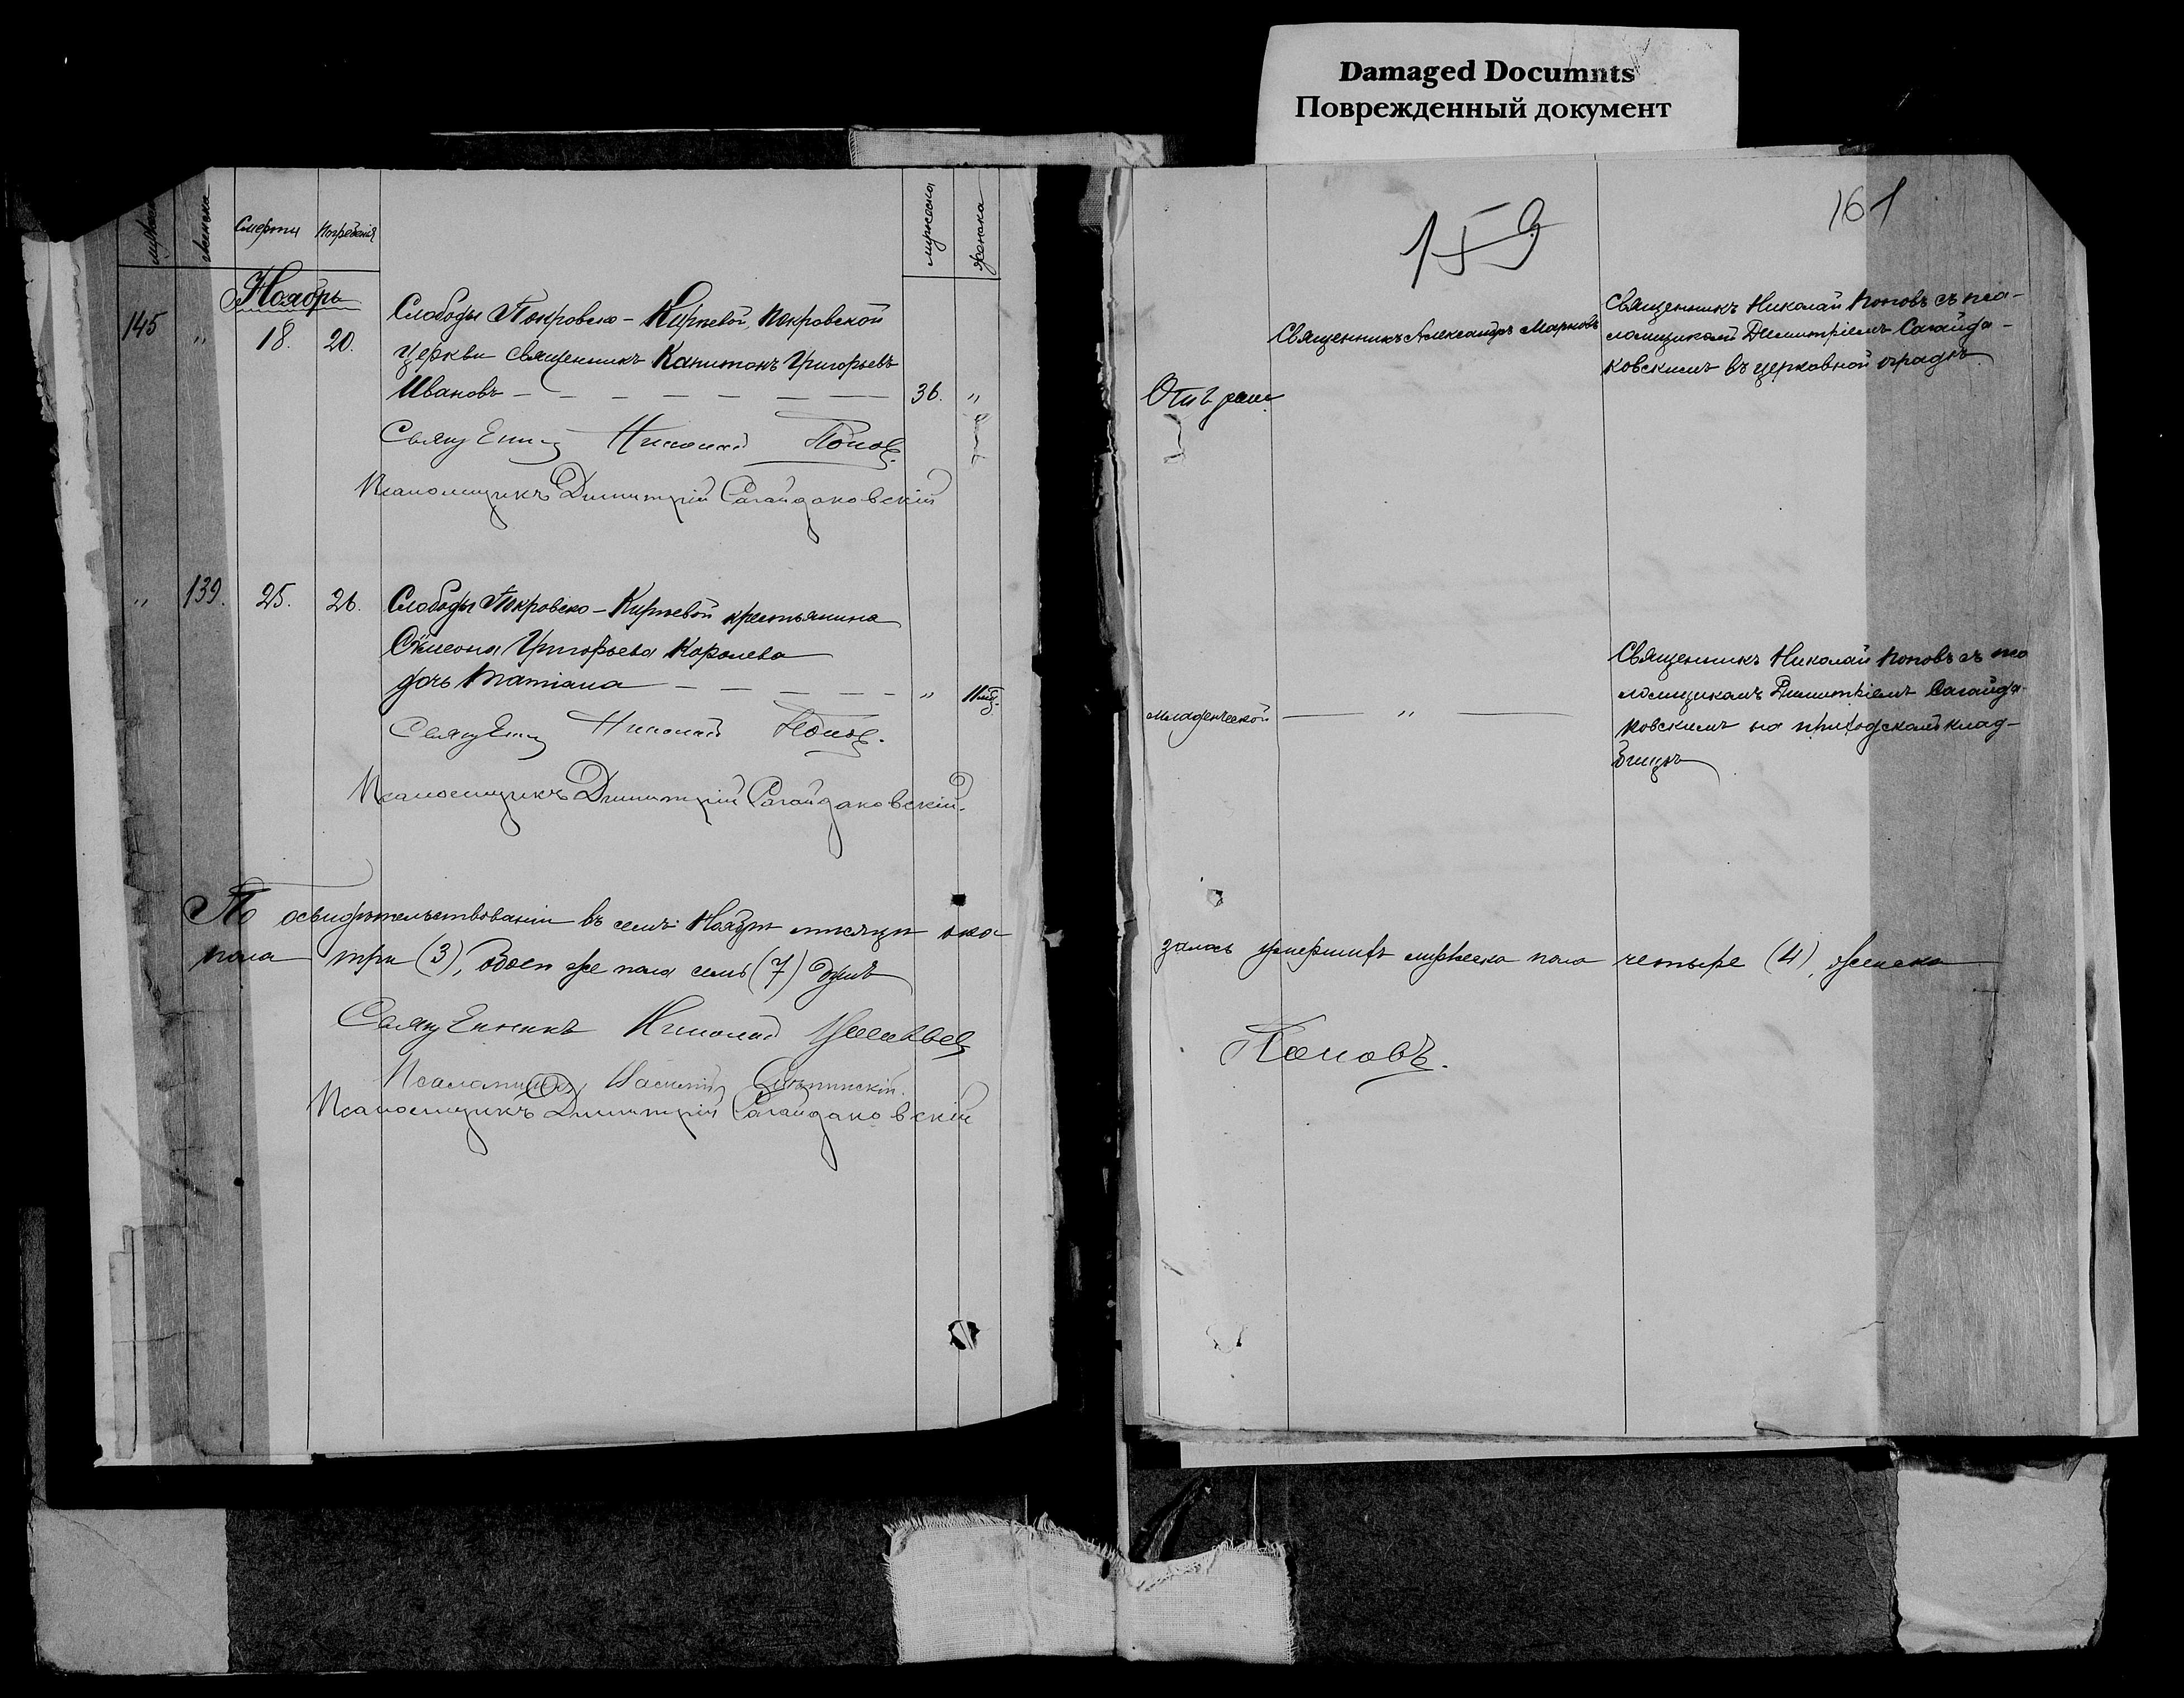 Damaged Documnts
Поврежденный документ
мужеска
женска
Смерти
Погребенія
мужеска
женска
Ноябрь
145
"
18.
20.
Слободы Покровско-Кирѣевой, Покровской
церкви священникъ Капитонъ Григорьевъ
Ивановъ
36.
"
Священникъ Николай Поповъ.
Псаломщикъ Димитрій Сагайдаковскій
"
139.
25.
26.
Слободы Покровско-Кирѣевой крестьянина
Симеона Григорьева Королева
дочь Татіана
"
11 мѣс.
Священникъ Николай Поповъ.
Псаломщикъ Димитрій Сагайдаковскій.
По освидѣтельствованіи въ семъ Ноябрѣ мѣсяцѣ ока-
пола три (3), обоего же пола семь (7) душъ
Священникъ Николай
Псаломщикъ Василій
Псаломщикъ Димитрій Сагайдаковскій
159
161
Отъ раны
Священникъ Александръ Марковъ
Священникъ Николай Поповъ съ пса-
ломщикомъ Димитріемъ Сагайда-
ковскимъ въ церковной оградѣ.
младенческой
"
Священникъ Николай Поповъ съ пса
ломщикомъ Димитріемъ Сагайда-
ковскимъ на приходскомъ клад-
бищѣ
залось умершихъ мужеска пола четыре (4), женска
Поповъ.